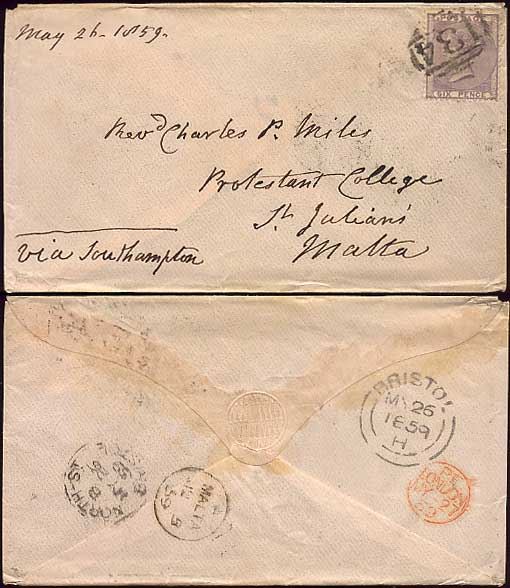 May 26 - 1859 -
POSTAGE
134
SIX PENCE
Revd Charles P. Miles
Protestant College
St Julian's
Malta
via Southampton
BRISTOL
MY 26
1859
H
MALTA